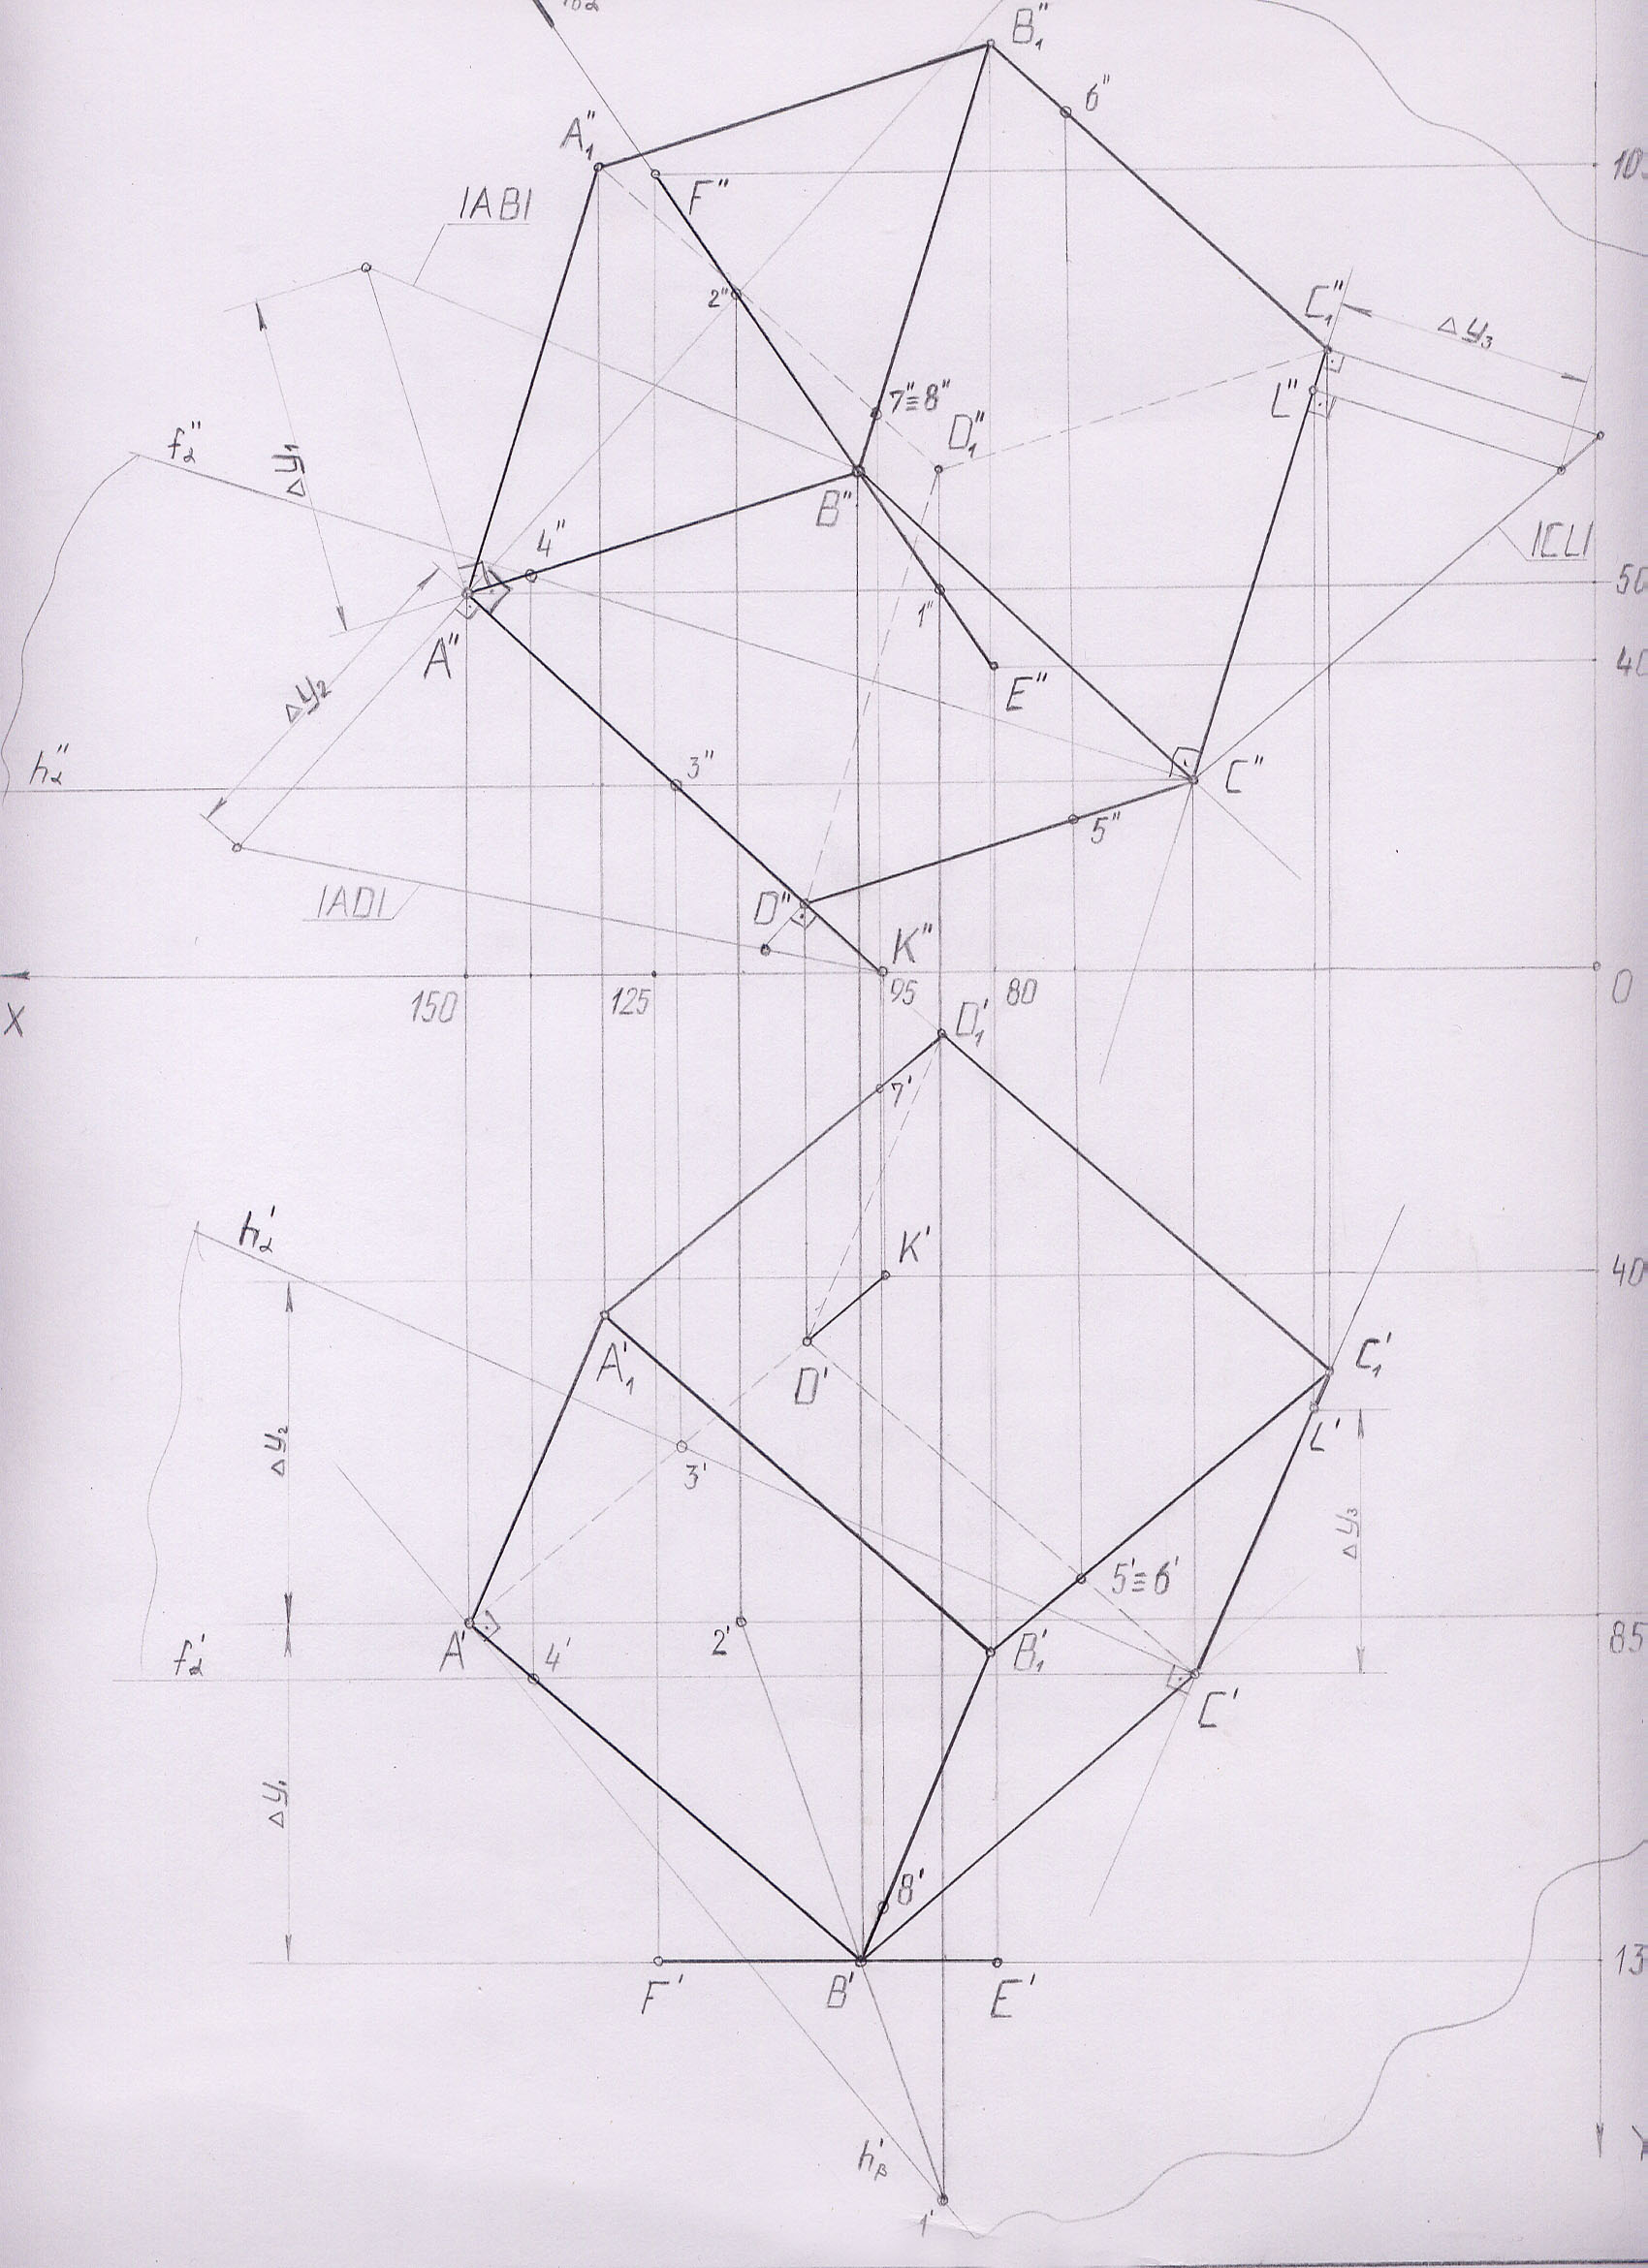 B₁"
6"
A₁"
F"
10
|AB|
2"
C₁"
Δy₃
7"≡8"
L"
f₂"
D₁"
Δy₁
B"
4"
|CL|
50
1"
A"
40
E"
Δy₂
3"
h₂"
C"
5"
|AD|
D"
K"
X
150
125
95
80
0
D₁'
7'
h₂'
K'
40
A₁'
C₁'
D'
L'
Δy₂
3'
Δy₃
5'≡6'
A'
4'
2'
B₁'
85
f₂'
C'
Δy₁
8'
13
F'
B'
E'
h'ᵦ
1'